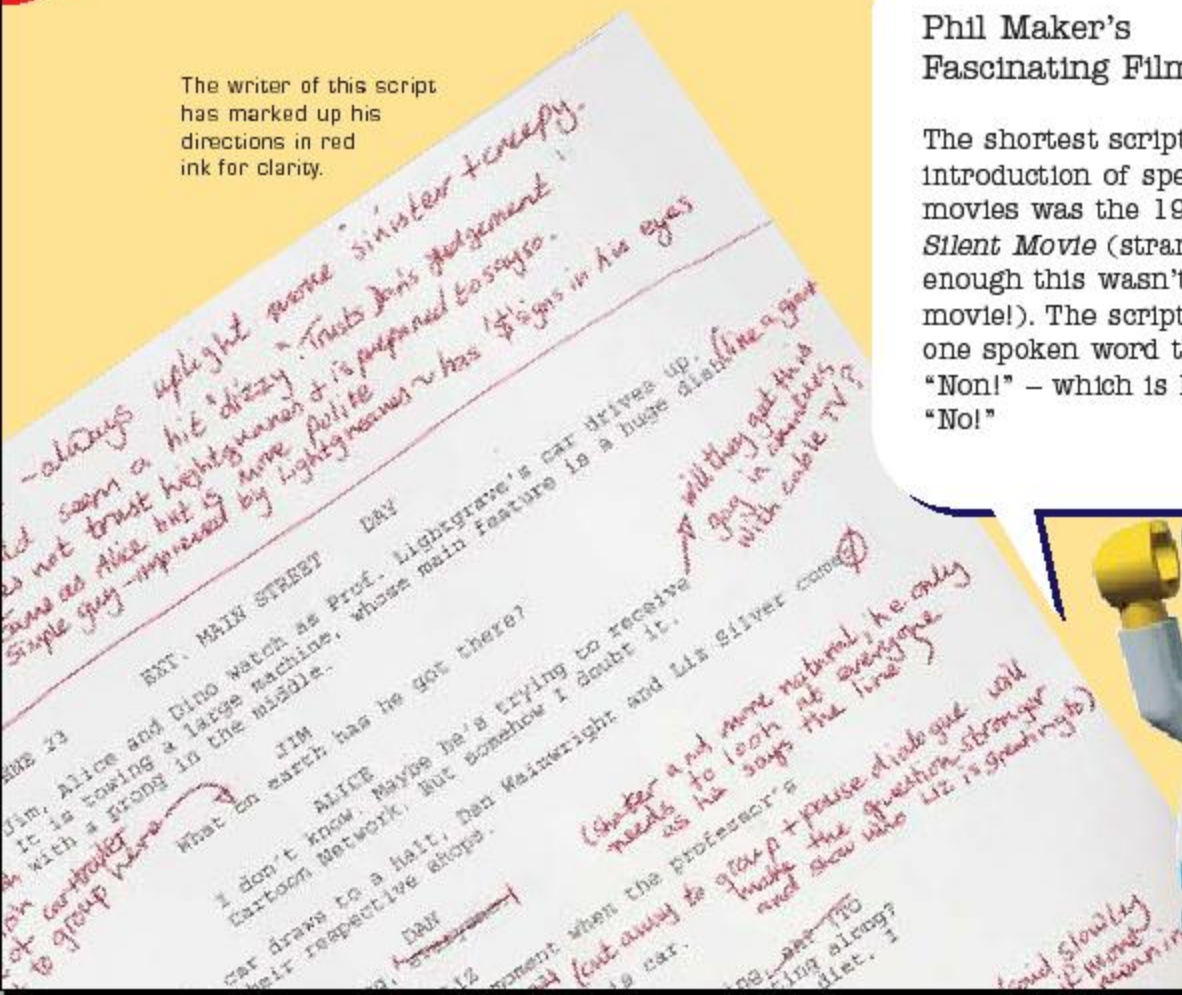 The writer of this script
has marked up his
directions in red
ink for clarity.
Phil Maker's
Fascinating Film
The shortest script
introduction of spe
movies was the 19
Silent Movie (stran
enough this wasn't
movie!). The script
one spoken word t
"Non!" – which is
"No!"
- always uplight more sinister + creepy.
seem a bit "dizzy". Trusts Dan's judgement
not trust Lightgraves + is prepared to say so.
same as Alice but is more polite
Simple guy - impressed by Lightgraves ~ has '$' signs in his eyes
EXT. MAIN STREET DAY
Jim, Alice and Dino watch as Prof. Lightgrave's car drives up.
It is towing a large machine, whose main feature is a huge dish
with a prong in the middle.
(like a giant
to group here
JIM
What on earth has he got there?
ALICE
I don't know. Maybe he's trying to receive
Cartoon Network. But somehow I doubt it.
will they get this
gag in
with cable TV?
car draws to a halt, Dan Wainwright and Liz Silver come
their respective shops.
DAN
(shorter and more natural, he only
needs to look at everyone
as he says the line)
LIZ
moment when the professor's
is car.
(cut away to group + pause dialogue will
make the question stronger
and show who Liz is speaking to)
ting along?
diet. I
slowly